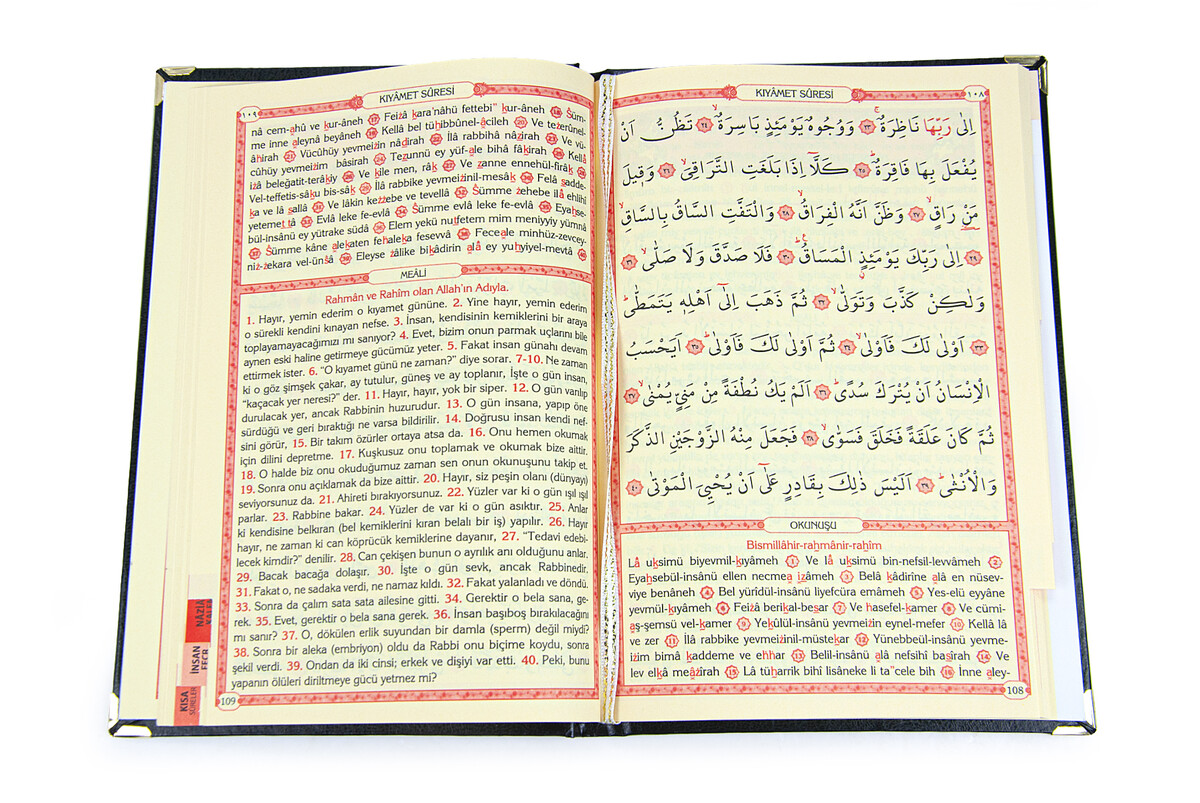 KIYÂMET SÛRESİ
١٠٨
اِلٰى رَبِّهَا نَاظِرَةٌۚ ﴿٢٣﴾ وَوُجُوهٌ يَوْمَئِذٍ بَاسِرَةٌۙ ﴿٢٤﴾ تَظُنُّ اَنْ
يُفْعَلَ بِهَا فَاقِرَةٌۜ ﴿٢٥﴾ كَلَّٓا اِذَا بَلَغَتِ التَّرَاقِيَۙ ﴿٢٦﴾ وَق۪يلَ
مَنْ رَاقٍۙ ﴿٢٧﴾ وَظَنَّ اَنَّهُ الْفِرَاقُۙ ﴿٢٨﴾ وَالْتَفَّتِ السَّاقُ بِالسَّاقِۙ
﴿٢٩﴾ اِلٰى رَبِّكَ يَوْمَئِذٍۨ الْمَسَاقُۜ ﴿٣٠﴾ فَلَا صَدَّقَ وَلَا صَلّٰىۙ ﴿٣١﴾
وَلٰكِنْ كَذَّبَ وَتَوَلّٰىۙ ﴿٣٢﴾ ثُمَّ ذَهَبَ اِلٰٓى اَهْلِه۪ يَتَمَطّٰىۜ
﴿٣٣﴾ اَوْلٰى لَكَ فَاَوْلٰىۙ ﴿٣٤﴾ ثُمَّ اَوْلٰى لَكَ فَاَوْلٰىۜ ﴿٣٥﴾ اَيَحْسَبُ
الْاِنْسَانُ اَنْ يُتْرَكَ سُدًىۜ ﴿٣٦﴾ اَلَمْ يَكُ نُطْفَةً مِنْ مَنِيٍّ يُمْنٰىۙ ﴿٣٧﴾
ثُمَّ كَانَ عَلَقَةً فَخَلَقَ فَسَوّٰىۙ ﴿٣٨﴾ فَجَعَلَ مِنْهُ الزَّوْجَيْنِ الذَّكَرَ
وَالْاُنْثٰىۜ ﴿٣٩﴾ اَلَيْسَ ذٰلِكَ بِقَادِرٍ عَلٰٓى اَنْ يُحْيِيَ الْمَوْتٰى ﴿٤٠﴾
OKUNUŞU
Bismillâhir-rahmânir-rahîm
Lâ uksimü biyevmil-kıyâmeh 1 Ve lâ uksimü bin-nefsil-levvâmeh 2
Eyahsebül-insânü ellen necmea izâmeh 3 Belâ kâdirîne alâ en nüsev-
viye benâneh 4 Bel yürîdül-insânü liyefcüra emâmeh 5 Yes-elü eyyâne
yevmül-kıyâmeh 6 Feizâ berikal-besar 7 Ve hasefel-kamer 8 Ve cümi-
aş-şemsü vel-kamer 9 Yekûlül-insânü yevmeizin eynel-mefer 10 Kellâ lâ
ve zer 11 İlâ rabbike yevmeizinil-müstekar 12 Yünebbeül-insânü yevme-
izim bimâ kaddeme ve ehhar 13 Belil-insânü alâ nefsihî basîrah 14 Ve
lev elkâ meâzîrah 15 Lâ tüharrik bihî lisâneke li ta"cele bih 16 İnne aley-
108
KIYÂMET SÛRESİ
١٠٩
nâ cem-ahû ve kur-âneh 17 Feizâ kara'nâhü fettebi" kur-âneh 18 Süm-
me inne aleynâ beyâneh 19 Kellâ bel tühibbûnel-âcileh 20 Ve tezerûnel-
âhirah 21 Vücûhüy yevmeizin nâdirah 22 İlâ rabbihâ nâzirah 23 Ve vü-
cûhüy yevmeizim bâsirah 24 Tezunnü ey yüf-ale bihâ fâkirah 25 Kellâ
izâ beleğatit-terâkıy 26 Ve kîle men, râk 27 Ve zanne ennehül-firâk 28
Vel-teffetis-sâku bis-sâk 29 İlâ rabbike yevmeizinil-mesâk 30 Felâ sadde-
ka ve lâ sallâ 31 Ve lâkin kezzebe ve tevellâ 32 Sümme zehebe ilâ ehlihî
yetemettâ 33 Evlâ leke fe-evlâ 34 Sümme evlâ leke fe-evlâ 35 Eyahse-
bül-insânü ey yütrake südâ 36 Elem yekü nutfetem mim meniyyiy yümnâ
37 Sümme kâne alekaten fehaleka fesevvâ 38 Feceale minhüz-zevcey-
niz-zekara vel-ünsâ 39 Eleyse zâlike bikâdirin alâ ey yuhyiyel-mevtâ 40
MEÂLİ
Rahmân ve Rahîm olan Allah'ın Adıyla.
1. Hayır, yemin ederim o kıyamet gününe. 2. Yine hayır, yemin ederim
o sürekli kendini kınayan nefse. 3. İnsan, kendisinin kemiklerini bir araya
toplayamayacağımızı mı sanıyor? 4. Evet, bizim onun parmak uçlarını bile
aynen eski haline getirmeye gücümüz yeter. 5. Fakat insan günahı devam
ettirmek ister. 6. "O kıyamet günü ne zaman?" diye sorar. 7-10. Ne zaman
ki o göz şimşek çakar, ay tutulur, güneş ve ay toplanır, İşte o gün insan,
"kaçacak yer neresi?" der. 11. Hayır, hayır, yok bir siper. 12. O gün varılıp
durulacak yer, ancak Rabbinin huzurudur. 13. O gün insana, yapıp öne
sürdüğü ve geri bıraktığı ne varsa bildirilir. 14. Doğrusu insan kendi nef-
sini görür, 15. Bir takım özürler ortaya atsa da. 16. Onu hemen okumak
için dilini depretme. 17. Kuşkusuz onu toplamak ve okumak bize aittir.
18. O halde biz onu okuduğumuz zaman sen onun okunuşunu takip et.
19. Sonra onu açıklamak da bize aittir. 20. Hayır, siz peşin olanı (dünyayı)
seviyorsunuz da. 21. Ahireti bırakıyorsunuz. 22. Yüzler var ki o gün ışıl ışıl
parlar. 23. Rabbine bakar. 24. Yüzler de var ki o gün asıktır. 25. Anlar
ki kendisine belkıran (bel kemiklerini kıran belalı bir iş) yapılır. 26. Hayır
hayır, ne zaman ki can köprücük kemiklerine dayanır, 27. "Tedavi edebi-
lecek kimdir?" denilir. 28. Can çekişen bunun o ayrılık anı olduğunu anlar.
29. Bacak bacağa dolaşır. 30. İşte o gün sevk, ancak Rabbinedir.
31. Fakat o, ne sadaka verdi, ne namaz kıldı. 32. Fakat yalanladı ve döndü.
33. Sonra da çalım sata sata ailesine gitti. 34. Gerektir o bela sana, ge-
rek. 35. Evet, gerektir o bela sana gerek. 36. İnsan başıboş bırakılacağını
mı sanır? 37. O, dökülen erlik suyundan bir damla (sperm) değil miydi?
38. Sonra bir aleka (embriyon) oldu da Rabbi onu biçime koydu, sonra
şekil verdi. 39. Ondan da iki cinsi; erkek ve dişiyi var etti. 40. Peki, bunu
yapanın ölüleri diriltmeye gücü yetmez mi?
109
İNSAN
FECR
KISA
SÛRELER